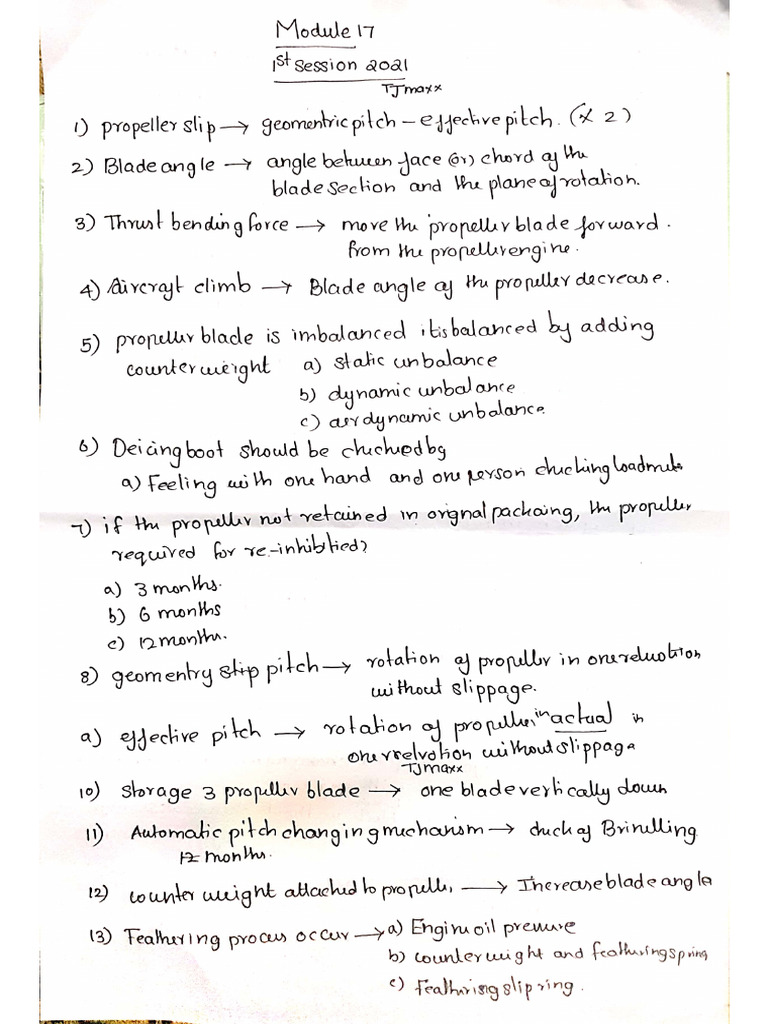 Module 17
1st Session 2021
TJmaxx
1) propeller slip → geomentric pitch - effective pitch. (x 2)
2) Blade angle → angle between face (or) chord of the
blade section and the plane of rotation.
3) Thrust bending force → move the propeller blade forward.
from the propeller engine.
4) Aircraft climb → Blade angle of the propeller decrease.
5) propeller blade is imbalanced it is balanced by adding
counter weight a) static unbalance
b) dynamic unbalance
c) aerdynamic unbalance
6) Deicing boot should be checked by
a) Feeling with one hand and one person checking loadmeter
7) if the propeller not retained in orignal packaing, the propeller
required for re-inhibitied?
a) 3 months.
b) 6 months
c) 12 months.
8) geomentry slip pitch → rotation of propeller in one
without slippage.
a) effective pitch → rotation of propeller in actual in
one without slippage
TJmaxx
10) Storage 3 propeller blade → one blade vertically down
11) Automatic pitch changing mechanism → check of Brinelling
12 months.
12) counter weight attached to propeller → Increase blade angle
13) Feathering process occur → a) Engine oil pressure
b) counterweight and feathering spring
c) Feathering slip ring.